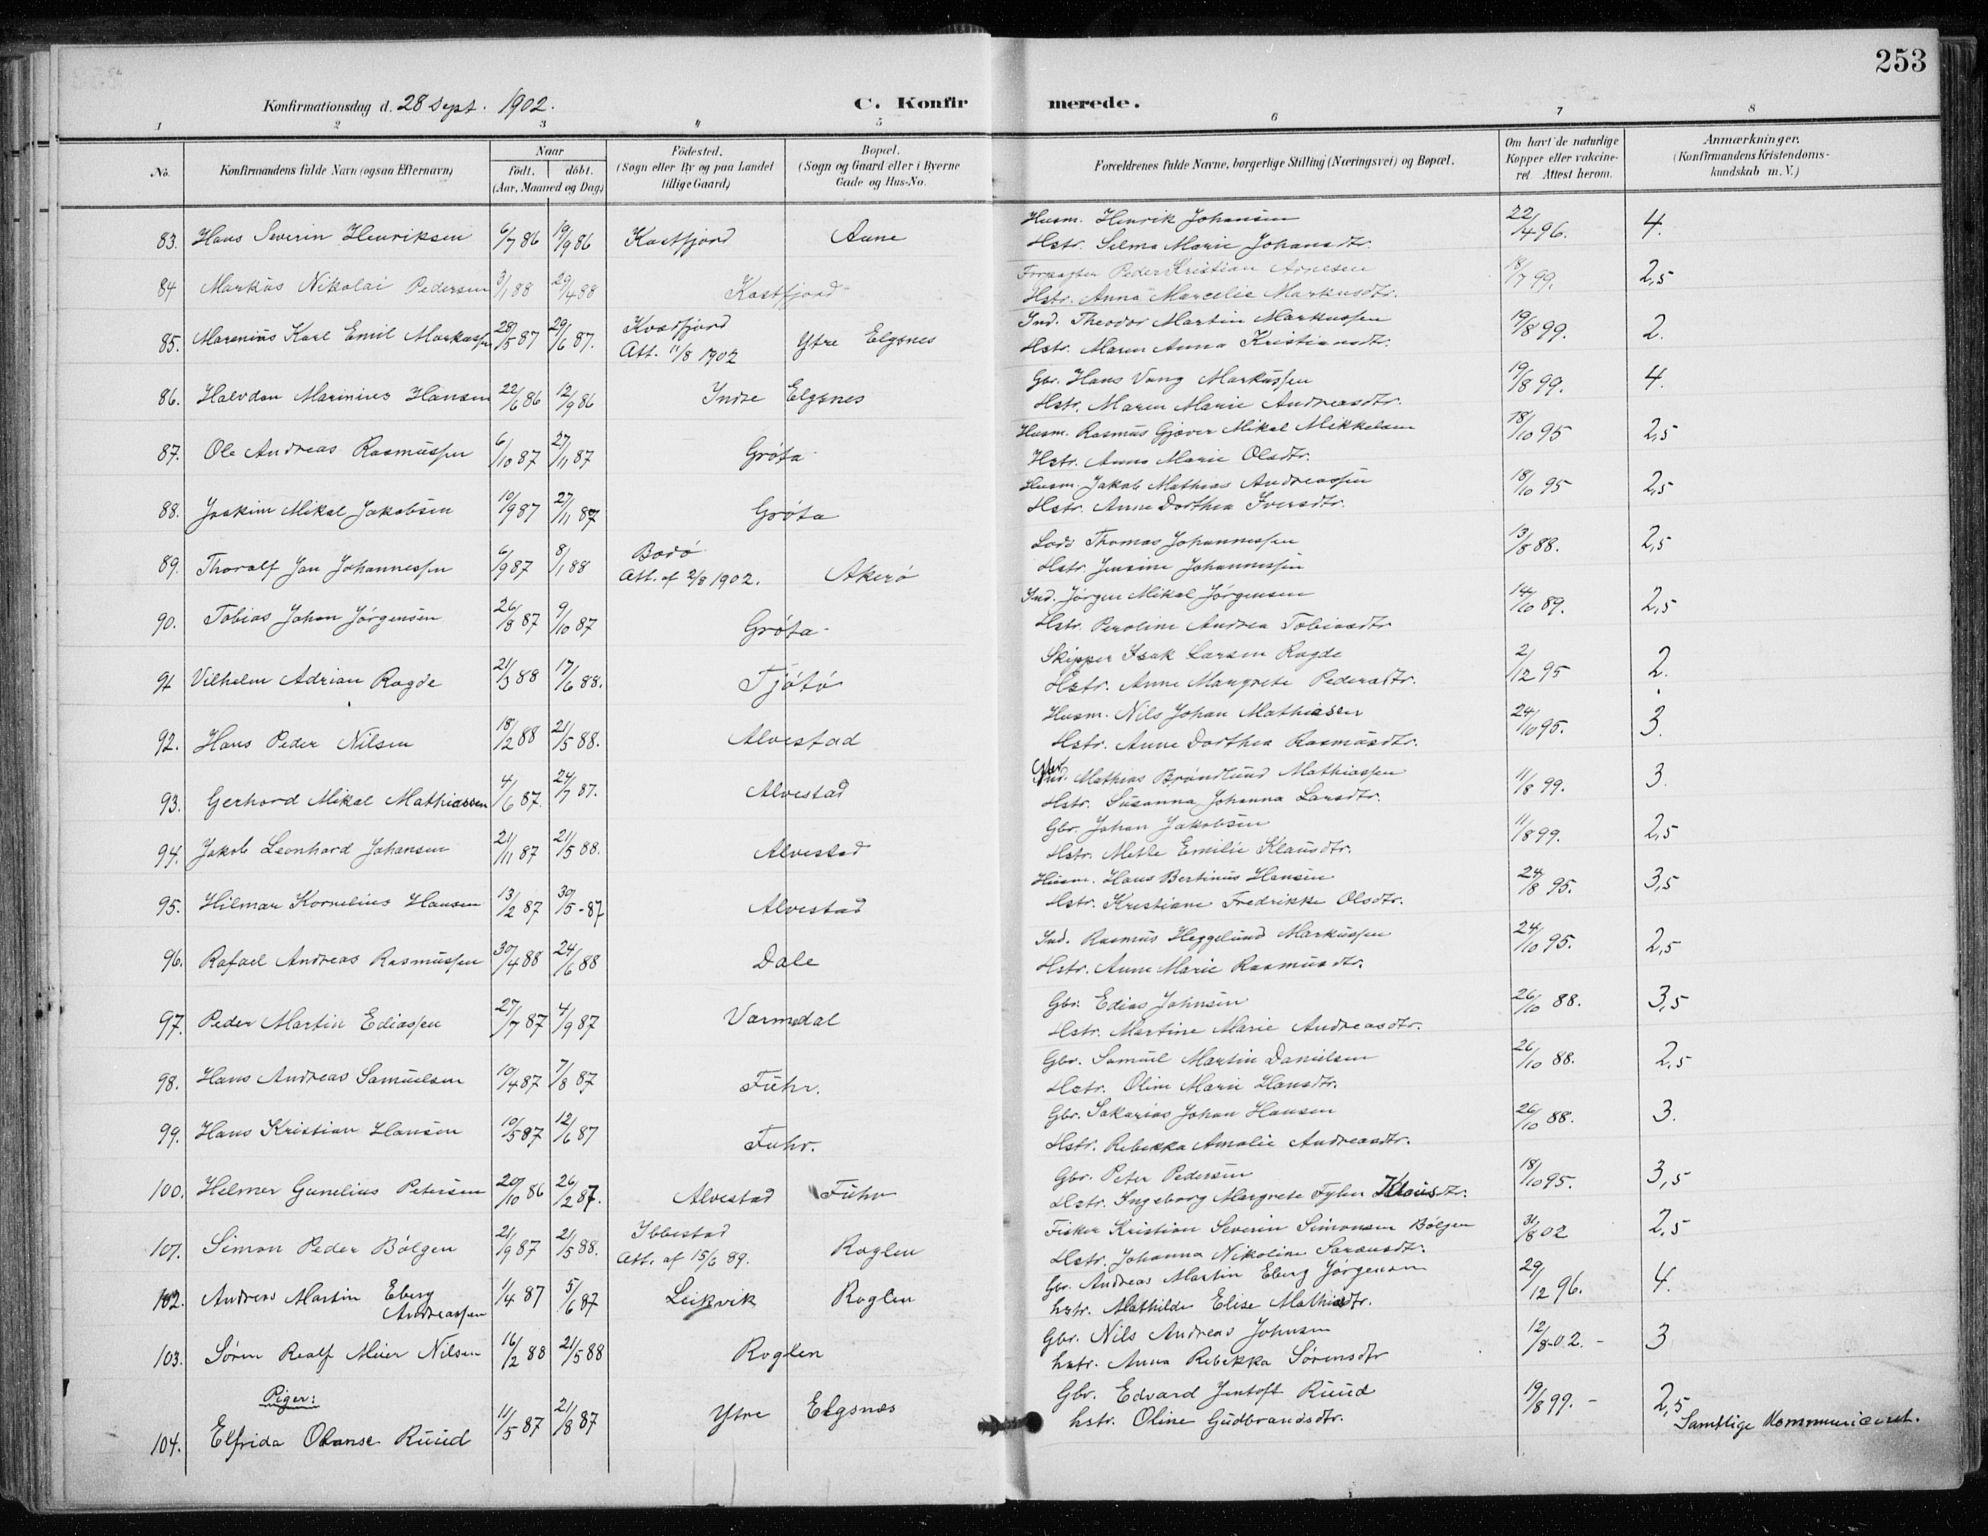 253
Konfirmationsdag d. 28 Sept. 1902.
C. Konfirmerede.
1 2 3 4 5 6 7 8
No. Konfirmandens fulde Navn (ogsaa Efternavn) Naar født. døbt. (Aar, Maaned og Dag) Fødested. (Sogn eller By og paa Landet tillige Gaard) Bopæl. (Sogn og Gaard eller i Byerne Gade og Hus-No. Forældrenes fulde Navne, borgerlige Stilling (Næringsvei) og Bopæl. Om havt de naturlige Kopper eller vaccineret. Attest herom. Anmærkninger. (Konfirmandens Kristendomskundskab m. V.)
83. Hans Severin Henriksen 6/7 86 19/9 86 Kastfjord Aune Husm. Henrik Johansen 22/4 96. 4.
Hstr. Selma Marie Johansdtr.
84 Markus Nikolai Pedersen 3/1 88 29/4 88 Kastfjord Forpagter Peder Kristian Arnesen 18/7 99. 2,5
Hstr. Anna Marcelie Markusdtr.
85. Marenius Karl Emil Markussen 28/5 87 29/6 87. Kvædfjord Att. 11/8 1902 Ytre Elgsnes Ind. Theodor Martin Markussen 19/8 99. 2.
Hstr. Maren Anna Kristiansdt.
86. Halvdan Marinius Hansen 22/6 86 12/9 86 Indre Elgsnes Gbr. Hans Vang Markussen 19/8 99. 4.
Hstr. Maren Marie Andreasdtr.
87. Ole Andreas Rasmussen 6/10 87 27/11 87 Grøta Husm. Rasmus Gjæver Mikal Mikkelsen 18/10 95 2,5
Hstr. Anna Marie Olsdtr.
88. Joakim Mikal Jakobsen 10/9 87 27/11 87 Grøta Husm. Jakob Mathias Andreassen 18/10 95 2,5
Hstr. Anne Dorthea Iversdtr.
89. Thoralf Jan Johannessen 6/9 87 8/1 88 Bodø Att. af 2/8 1902. Akerø Lods Thomas Johannessen 13/8 88. 2,5
Hstr. Jensine Johannessen
90. Tobias Johan Jørgensen 26/8 87 9/10 87 Grøta Ind. Jørgen Mikal Jørgensen 14/10 89. 2,5
Hstr. Peroline Andrea Tobiasdtr
91 Vilhelm Adrian Ragde 21/3 88 17/6 88. Tjøtø Skipper Isak Larsen Ragde 2/12 95 2.
Hstr. Anne Margrete Pedersdtr.
92. Hans Peder Nilsen 18/2 88 21/5 88. Alvestad Husm. Nils Johan Mathiasen 24/10 95. 3.
Hstr. Anne Dorthea Rasmusdtr.
93. Gerhard Mikal Mathiassen 4/6 87. 24/7 87. Alvestad Gbr. Mathias Brøndlund Mathiassen 11/8 99. 3.
Hstr. Susanna Johanna Larsdtr.
94. Jakob Leonhard Johansen 21/11 87 21/5 88. Alvestad Gbr. Johan Jakobsen 11/8 99. 2,5
Hstr. Mette Emilie Klausdtr.
95. Hilmar Kornelius Hansen 13/2 87 30/5-87 Alvestad Husm. Hans Bertinus Hansen 24/8 95. 3,5
Hstr. Kristiane Fredrikke Olsdtr.
96. Rafael Andreas Rasmussen 30/4 88 24/6 88 Dale Ind. Rasmus Heggelund Markussen 24/10 95. 2,5
Hstr. Anne Marie Rasmusdtr.
97. Peder Martin Ediassen 27/7 87 4/9 87 Varmedal Gbr. Edias Johnsen 26/10 88. 3,5
Hstr. Martine Marie Andreasdtr.
98. Hans Andreas Samuelsen 10/4 87 7/8 87 Fuhr. Gbr. Samuel Martin Danielsen 26/10 88. 2,5
Hstr. Oline Marie Hansdtr.
99. Hans Kristian Hansen 10/5 87 12/6 87 Fuhr. Gbr. Sakarias Johan Hansen 26/10 88. 3.
Hstr. Rebekka Amalie Andreasdtr.
100. Helmer Gunelius Petersen 20/10 86 26/2 87. Alvestad Fuhr Gbr. Peter Pedersen 18/10 95. 3,5
Hstr. Ingeborg Margrete Klausdtr.
101. Simon Peder Bølgen 21/9 87 21/5 88. Ibbestad Att. af 15/6 89. Roglen Fisker Kristian Severin Simonsen Bølgen 31/8 02 2,5
Hstr. Johanna Nikoline Sørensdtr.
102. Andreas Martin Eberg Andreassen 1/4 87 5/6 87 Leikvik Roglen Gbr. Andreas Martin Eberg Jørgensen 29/12 96. 4.
hstr. Mathilde Elise Mathiasdtr.
103. Søren Realf Meier Nilsen 16/2 88 21/5 88 Roglen Gbr. Nils Andreas Johnsen 12/8-02.- 3
hstr. Anna Rebekka Sørensdtr
Piger:
104. Elfrida Olanse Ruud 11/5 87 21/8 87 Ytre Elgsnæs Gbr. Edvard Jentoft Ruud 19/8 99.- 2,5
hstr. Oline Gudbrandsdtr.
Samtlige kommuniceret.